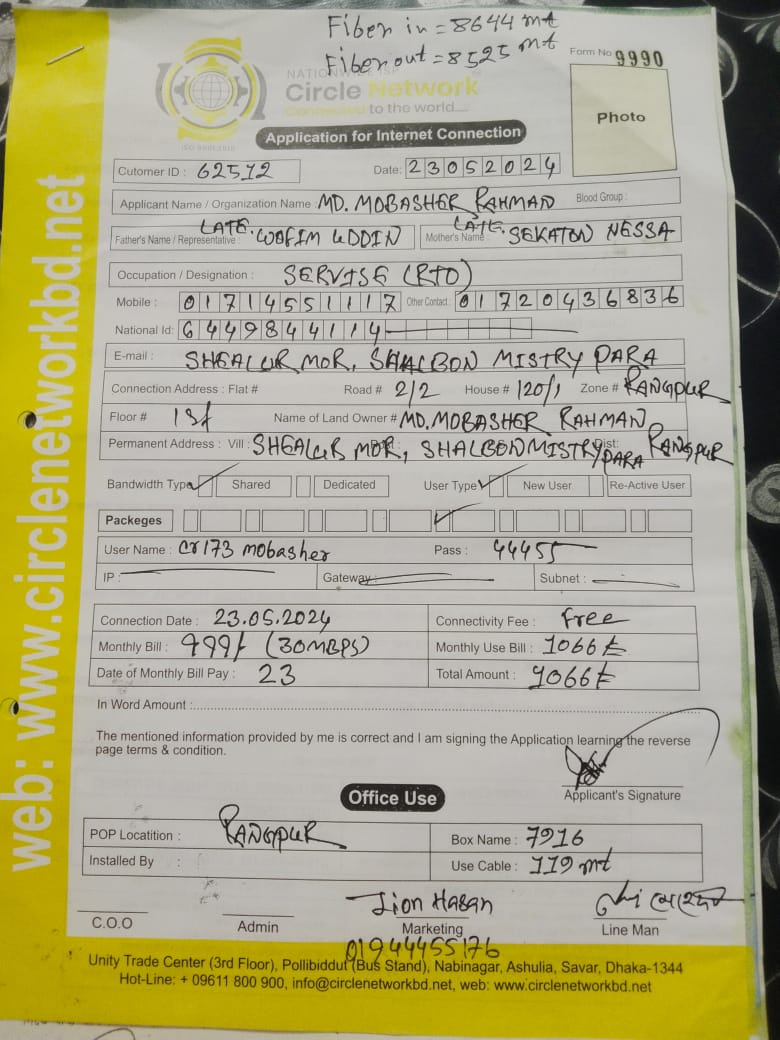 Fiber in = 8644 mt
Fiber out = 8525 mt
Form No 9990
NATIONWIDE ISP
Circle Network
Connected to the world....
ISO 9001:2015
Photo
Application for Internet Connection
Cutomer ID : 62512 Date: 23052024
Applicant Name / Organization Name : MD. MOBASHER RAHMAN Blood Group :
Father's Name / Representative : LATE. WOFIM UDDIN Mother's Name : LATE. SEKATON NESSA
Occupation / Designation : SERVISE (RTO)
Mobile : 01714551117 Other Contact : 01720436836
National Id: 6449844114
E-mail : SHEALUR MOR, SHALBON MISTRY PARA
Connection Address : Flat # Road # 2/2 House # 120/1 Zone # RANGPUR
Floor # 1st Name of Land Owner # MD. MOBASHER RAHMAN
Permanent Address : Vill : SHEALUR MOR, SHALBON MISTRY PARA Dist: RANGPUR
Bandwidth Type ✓ Shared Dedicated User Type ✓ New User Re-Active User
Packeges ✓
User Name : cr173 mobasher Pass : 44455
IP : Gateway Subnet :
Connection Date : 23.05.2024 Connectivity Fee : free
Monthly Bill : 999/- (30MBPS) Monthly Use Bill : 1066 ৳
Date of Monthly Bill Pay : 23 Total Amount : 1066 ৳
In Word Amount :
The mentioned information provided by me is correct and I am signing the Application learning the reverse
page terms & condition.
Applicant's Signature
Office Use
POP Locatition : RANGPUR Box Name : 7916
Installed By : Use Cable : 119 mt
Jion Hasan
C.O.O Admin Marketing Line Man
01944455176
Unity Trade Center (3rd Floor), Pollibiddut (Bus Stand), Nabinagar, Ashulia, Savar, Dhaka-1344
Hot-Line: + 09611 800 900, info@circlenetworkbd.net, web: www.circlenetworkbd.net
web: www.circlenetworkbd.net